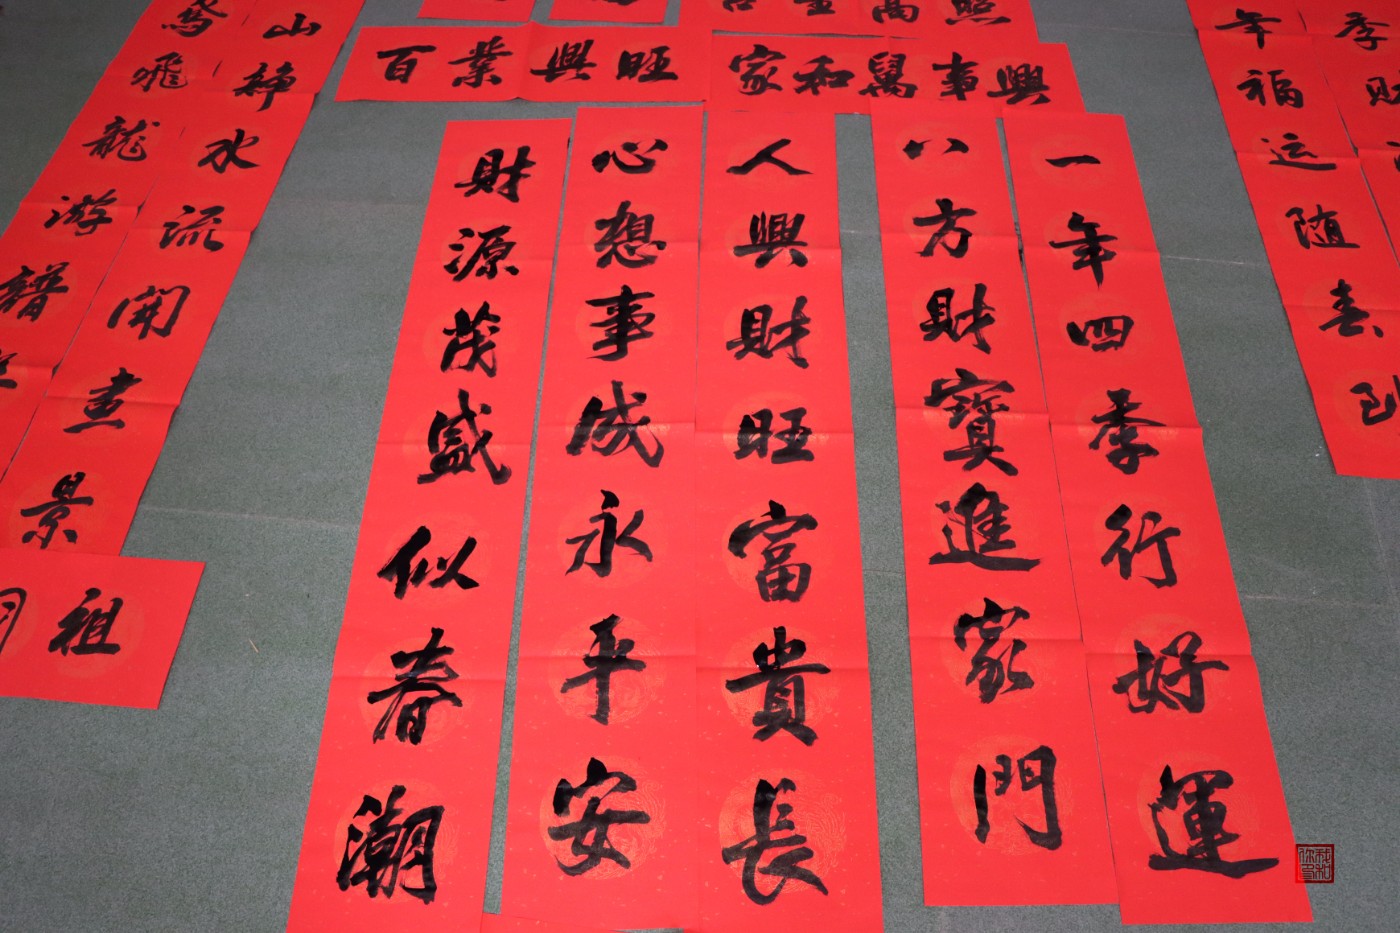 百業興旺
家和萬事興
一年四季行好運
八方財寶進家門
人興財旺富貴長
心想事成永平安
財源茂盛似春潮
年福运随春到
季财
山
水流開畫景
飛龍游譜
祖